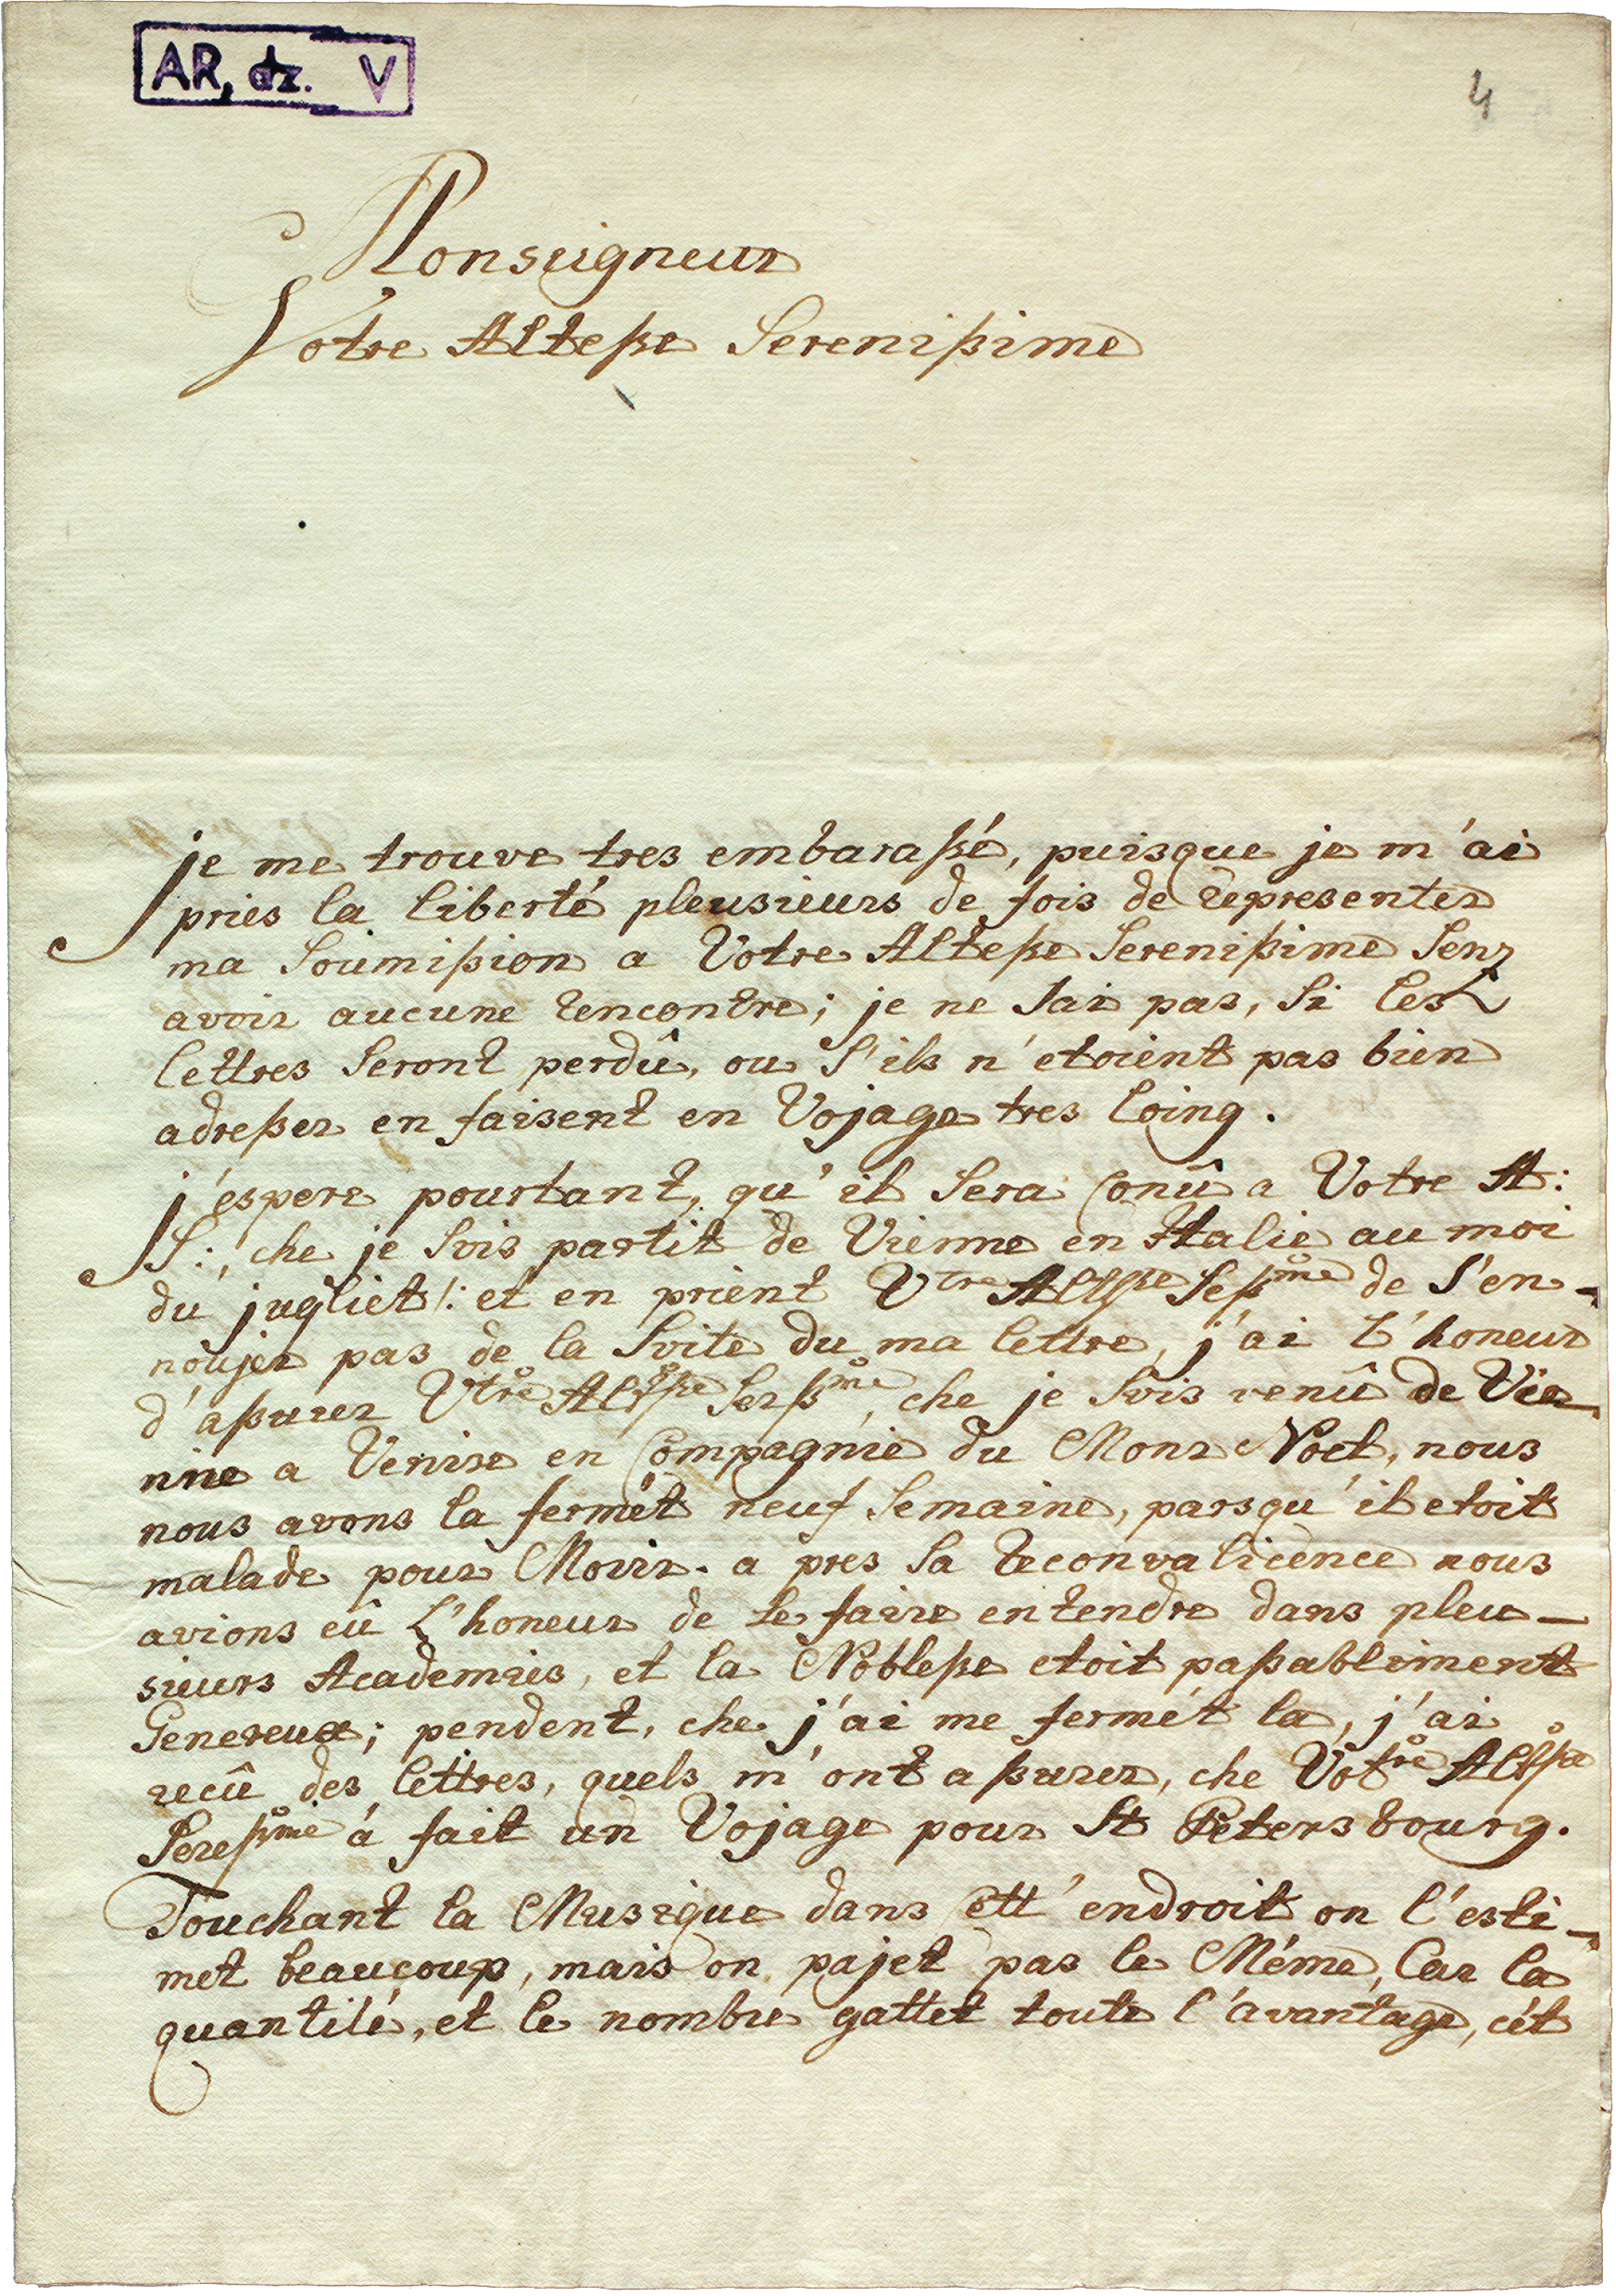 AR, dz. V
4
Monseigneur
Votre Alteße Serenißime
je me trouve tres embaraßé, puisque je m'ai
pries la liberté pleusieurs de fois de representer
ma Soumißion a Votre Alteße Serenißime Senz
avoir aucune rencontre; je ne Sai pas, Si les
lettres Seront perdû, ou S'ils n'etoient pas bien
adreßer en faisent en Vojage tres loing.
j'espere pourtant, qu'il Sera Conû a Votre A:
S:, che je Svis partit de Vienne en Italie au moi
du jugliet /: et en prient Vtre Altße Seßme de S'en-
noujer pas de la Svite du ma lettre, j'ai L'honeur
d'aßurer Vtre Altße Serßme, che je Svis venû de Vie-
nne a Venise en Compagnie du Monr Noel, nous
nous avons la fermét neuf Semaine, parsqu'il etoit
malade pour Movir. a pres Sa reconvalicence nous
avions eû L'honeur de Se faire entendre dans pleu-
sieurs Academies, et la Nobleße etoit paßablement
Genereux; pendent, che j'ai me fermét la, j'ai
recû des lettres, quels m'ont aßurer, che Votre Altße
Sereßme á fait un Vojage pour St Petersbourg.
Touchant la Musique dans Cett'endroit on l'esti-
met beaucoup, mais on pajet pas le Méme, Car la
quantité, et le nombre gattet toute l'avantage, cét